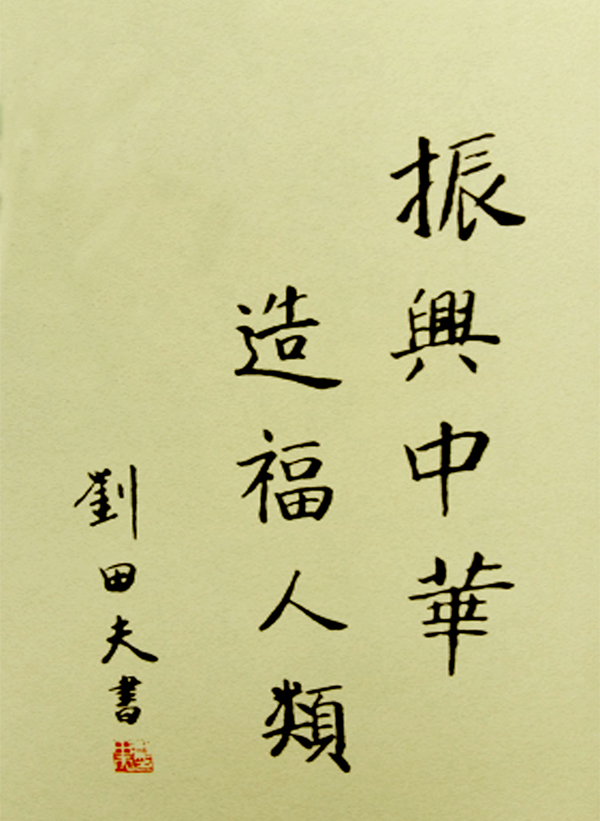 振興中華
造福人類
劉田夫書